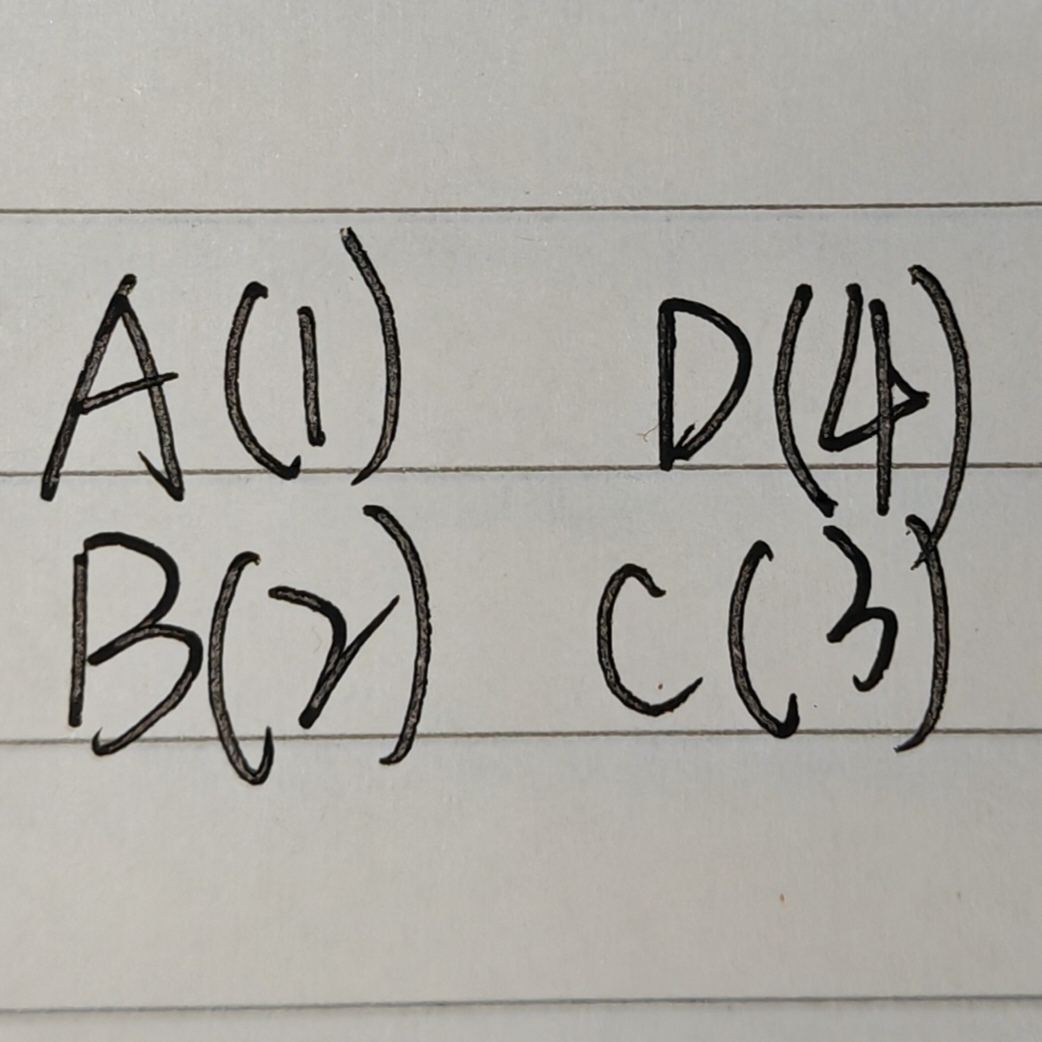 A(1) D(4)
B(2) C(3)